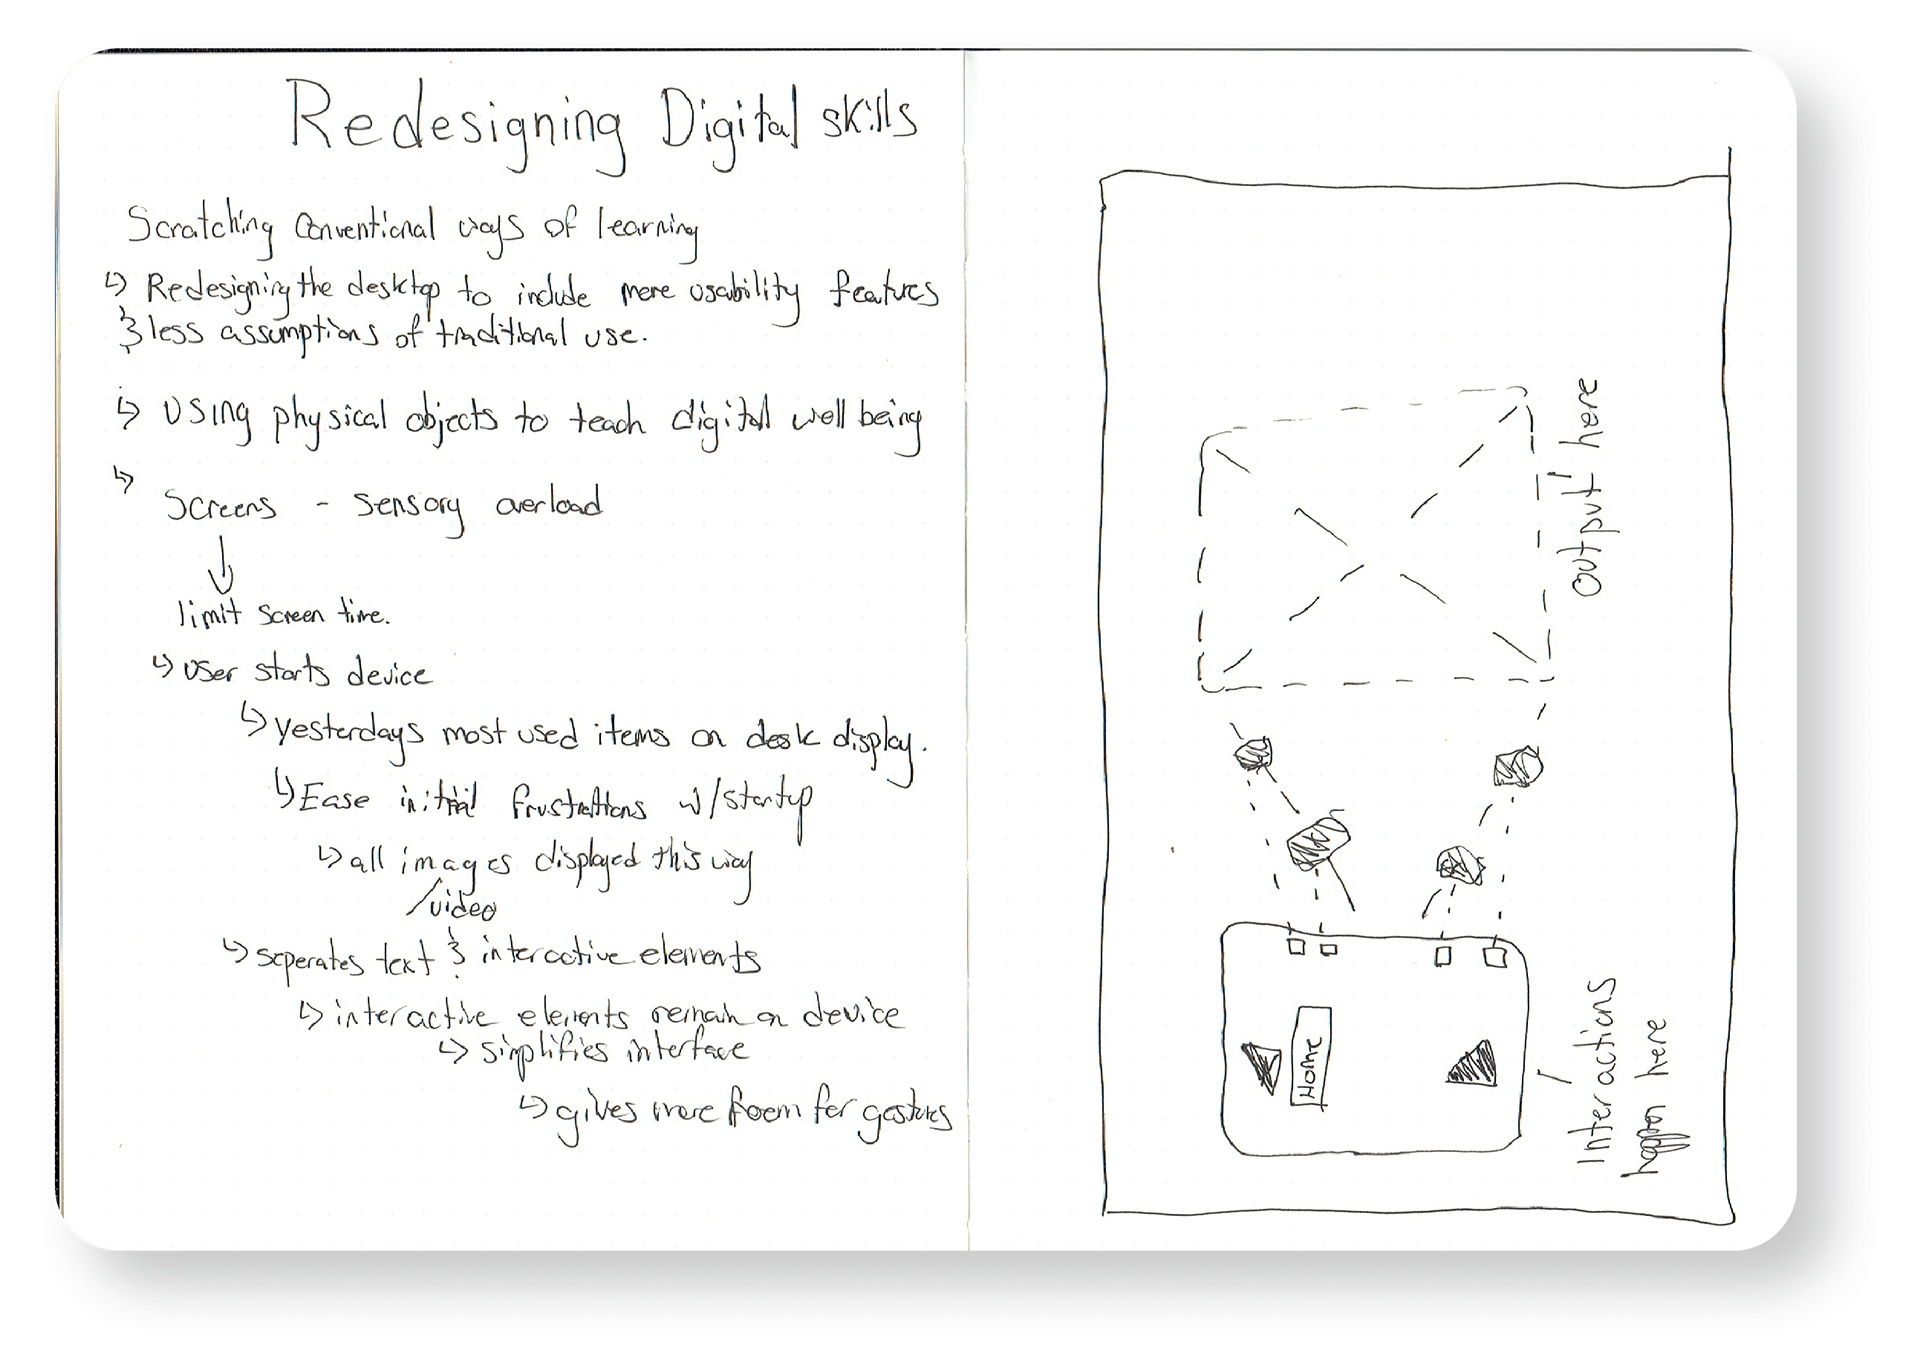 Redesigning Digital skills
Scratching Conventional ways of learning
↳ Redesigning the desktop to include more usability features
& less assumptions of traditional use.
↳ Using physical objects to teach digital well being
↳
Screens - sensory overload
↓
limit screen time.
↳ User starts device
↳ yesterdays most used items on desk display.
↳ Ease initial frustrations w/startup
↳ all images displayed this way
/video
↳ seperates text & interactive elements
↳ interactive elements remain on device
↳ simplifies interface
↳ gives more room for gestures
output here
Home
Interactions
happen here